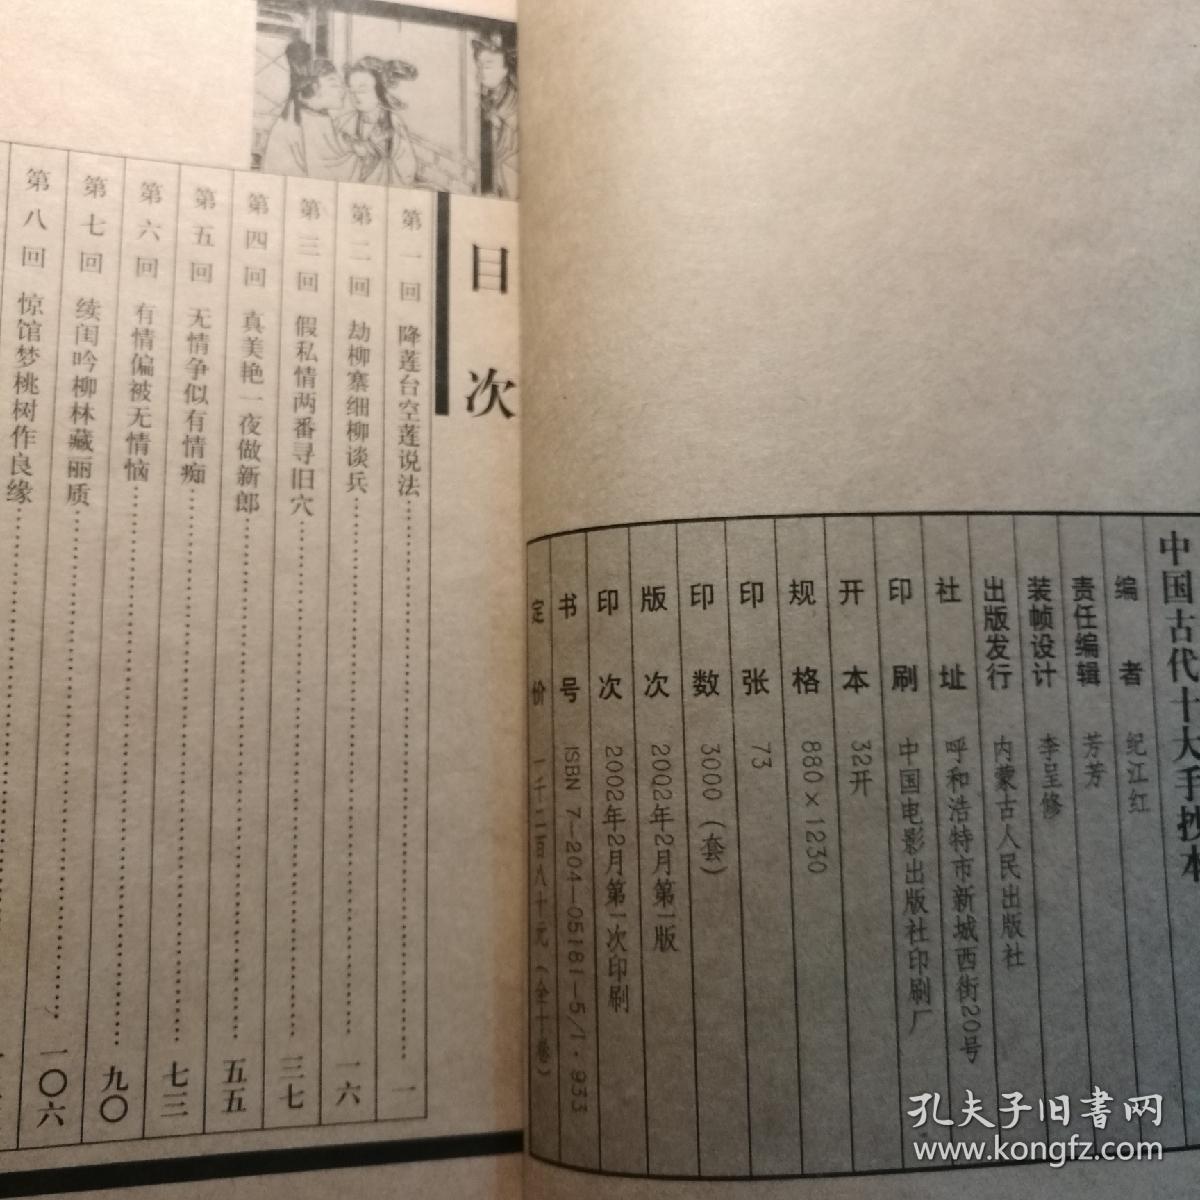 中国古代十大手抄本
编者 纪江红
责任编辑 芳芳
装帧设计 李呈修
出版发行 内蒙古人民出版社
社址 呼和浩特市新城西街20号
印刷 中国电影出版社印刷厂
开本 32开
规格 880×1230
印张 73
印数 3000（套）
版次 2002年2月第1版
印次 2002年2月第1次印刷
书号 ISBN 7-204-05181-5/I·933
定价 一千二百八十元（全十卷）
目次
第一回 降莲台空莲说法……一
第二回 劫柳寨细柳谈兵……一六
第三回 假私情两番寻旧穴……三七
第四回 真美艳一夜做新郎……五五
第五回 无情争似有情痴……七三
第六回 有情偏被无情恼……九〇
第七回 续闺吟柳林藏丽质……一〇六
第八回 惊馆梦桃树作良缘
孔夫子旧书网
www.kongfz.com